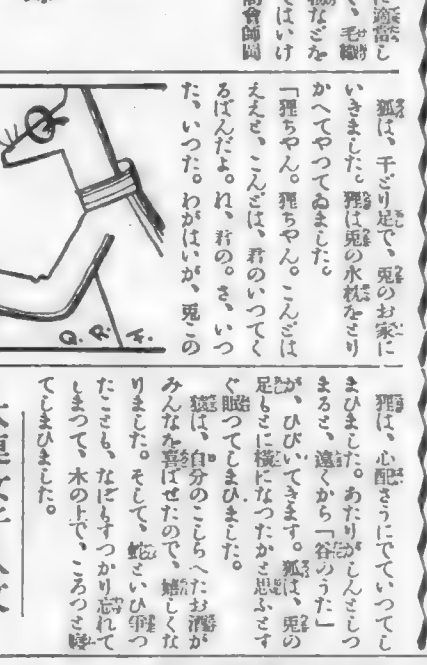 に適當し
て、毛織
物などを
てはいけ
狐は、千どり足で、兎のお家に
いきました。狸は兎の水枕をとり
かへてやつてゐました。
「狸ちやん。狸ちやん。こんどは
ええと、こんどは、君のいつてく
るばんだよ。れ、君の。さ、いつ
た、いつた。わがはいが、兎この
Q. R. F.
狸は、心配さうにでていつてし
まひました。あたりがしんとしづ
まると、遠くから「谷のうた」
が、ひびいてきます。狐は、兎の
足もとに横になつたかと思ふとす
ぐ眠つてしまひました。
猿は、自分のこしらへたお酒が
みんなを喜ばせたので、嬉しくな
りました。そして、蛇といひ爭つ
たことも、なにもすつかり忘れて
しまつて、木の上で、ころつと寢
てしまひました。